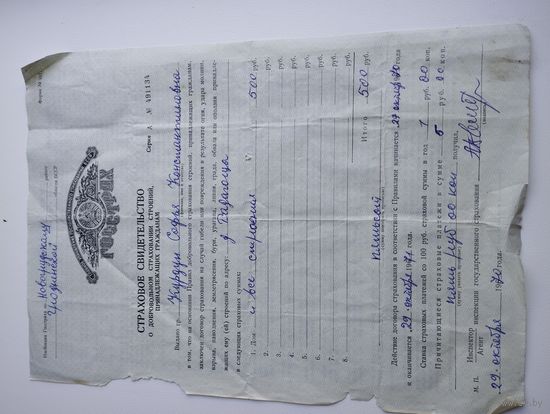 Форма №
Инспекция Госстраха по Новогрудскому району
Гродненской области БССР
ГОССТРАХ
СТРАХОВОЕ СВИДЕТЕЛЬСТВО
О ДОБРОВОЛЬНОМ СТРАХОВАНИИ СТРОЕНИЙ,
ПРИНАДЛЕЖАЩИХ ГРАЖДАНАМ
Серия А № 491134
Выдано гр. Софья Константиновна
в том, что на основании Правил добровольного страхования строений, принадлежащих гражданам,
заключен договор страхования на случай гибели или повреждения в результате огня, удара молнии,
взрыва, наводнения, землетрясения, бури, урагана, ливня, града, обвала или оползня принадле-
жащих ему (ей) строений по адресу: д.
в следующих страховых суммах:
1. Дом и все строения 500 руб.
2. руб.
3. руб.
4. руб.
5. руб.
6. руб.
7. руб.
8. руб.
Итого 500 руб.
Пятьсот
Действие договора страхования в соответствии с Правилами начинается 29 октября 1970 года
и оканчивается 29 октября 1971 года.
Ставка страховых платежей со 100 руб. страховой суммы в год 1 руб. 00 коп.
Причитающиеся страховые платежи в сумме 5 руб. 00 коп.
Пять руб 00 коп получил.
Инспектор
Агент инспекции государственного страхования
М. П. 29 октября 1970 г.